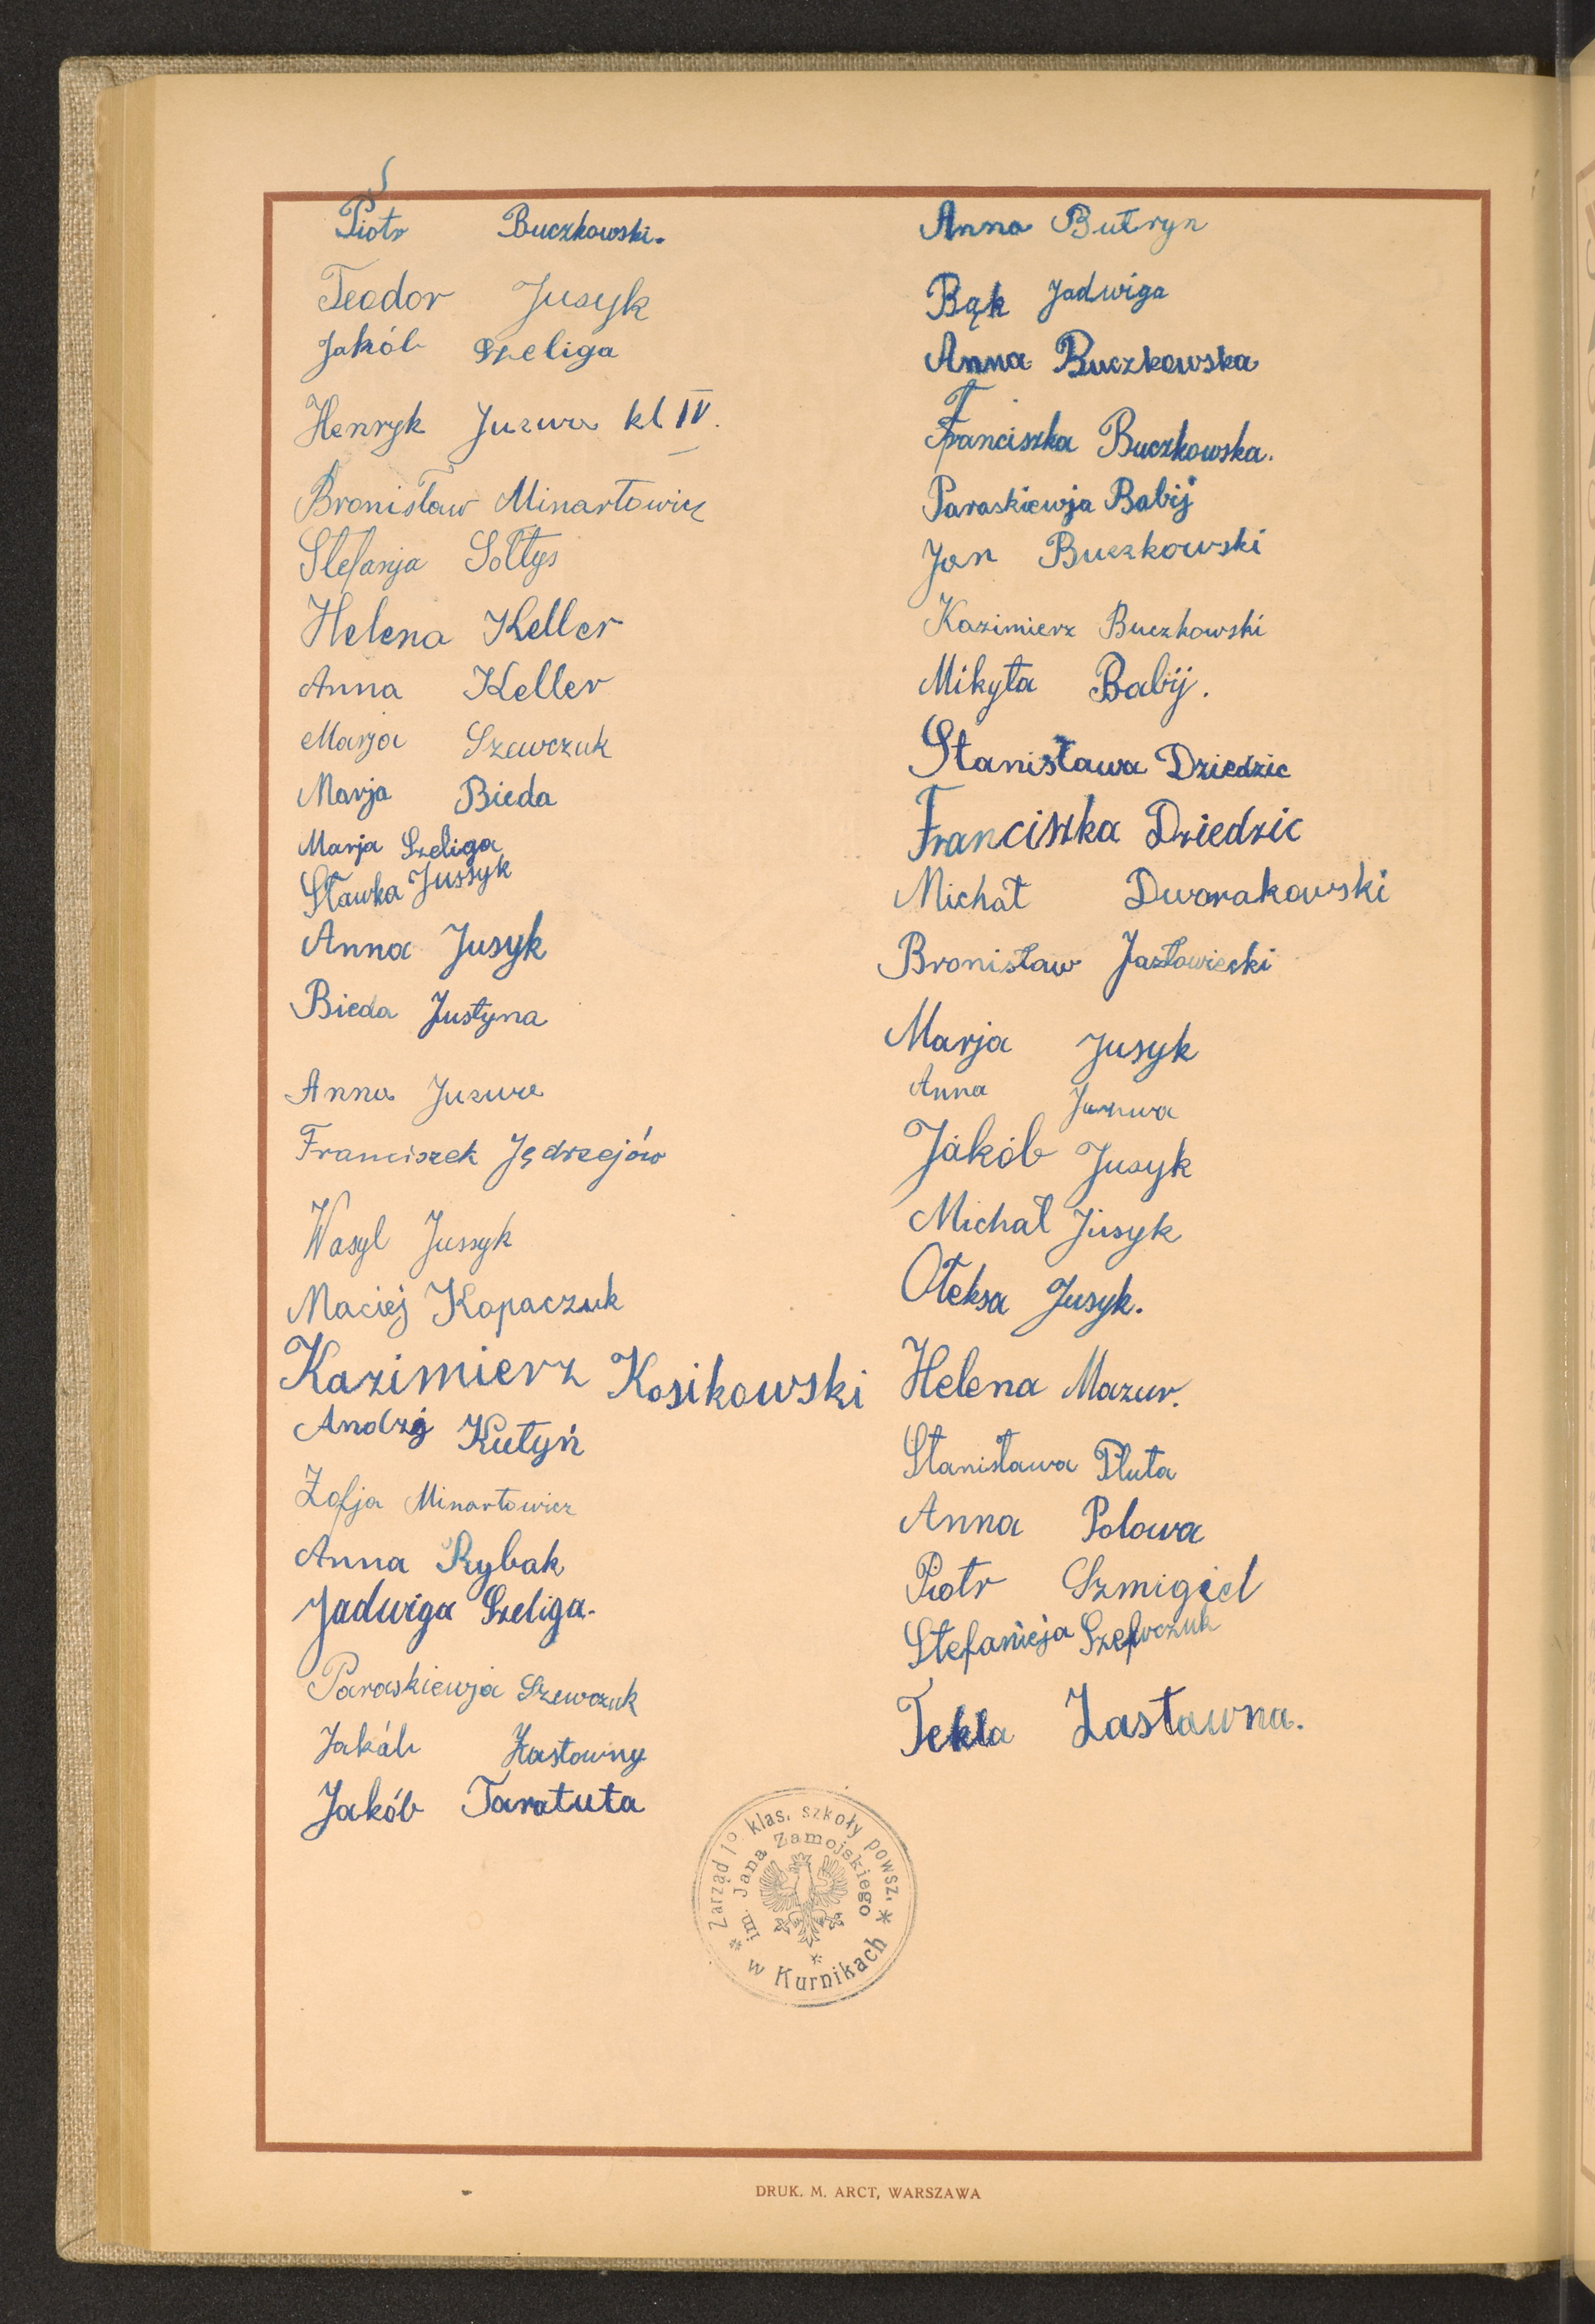 Piotr Buczkowski.
Teodor Jusyk
Jakób Szeliga
Henryk Juzwa kl IV.
Bronisław Minartowicz
Stefanja Sołtys
Helena Keller
Anna Keller
Marja Szewczuk
Marja Bieda
Marja Szeliga
Sławka Jussyk
Anna Jusyk
Bieda Justyna
Anna Juzwa
Franciszek Jędrzejów
Wasyl Jussyk
Maciej Kopaczuk
Kazimierz Kosikowski
Andrzj Kutyń
Zofja Minartowicz
Anna Rybak
Jadwiga Szeliga.
Paraskiewja Szewczuk
Jakób Zastawny
Jakób Taratuta
Anna Butryn
Bąk Jadwiga
Anna Buczkowska
Franciszka Buczkowska.
Paraskiewja Babij
Jan Buczkowski
Kazimierz Buczkowski
Mikyta Babij.
Stanisława Dziedzic
Franciszka Dziedzic
Michał Dworakowski
Bronisław Jazłowiecki
Marja Jusyk
Anna Juzwa
Jakób Jusyk
Michał Jusyk
Ołeksa Jusyk.
Helena Mazur.
Stanisława Pluta
Anna Polowa
Piotr Szmigiel
Stefanieja Szefwczuk
Tekla Zastawna.
* Zarząd 1º klas. szkoły powsz. *
im. Jana Zamojskiego
w Kurnikach
DRUK. M. ARCT, WARSZAWA